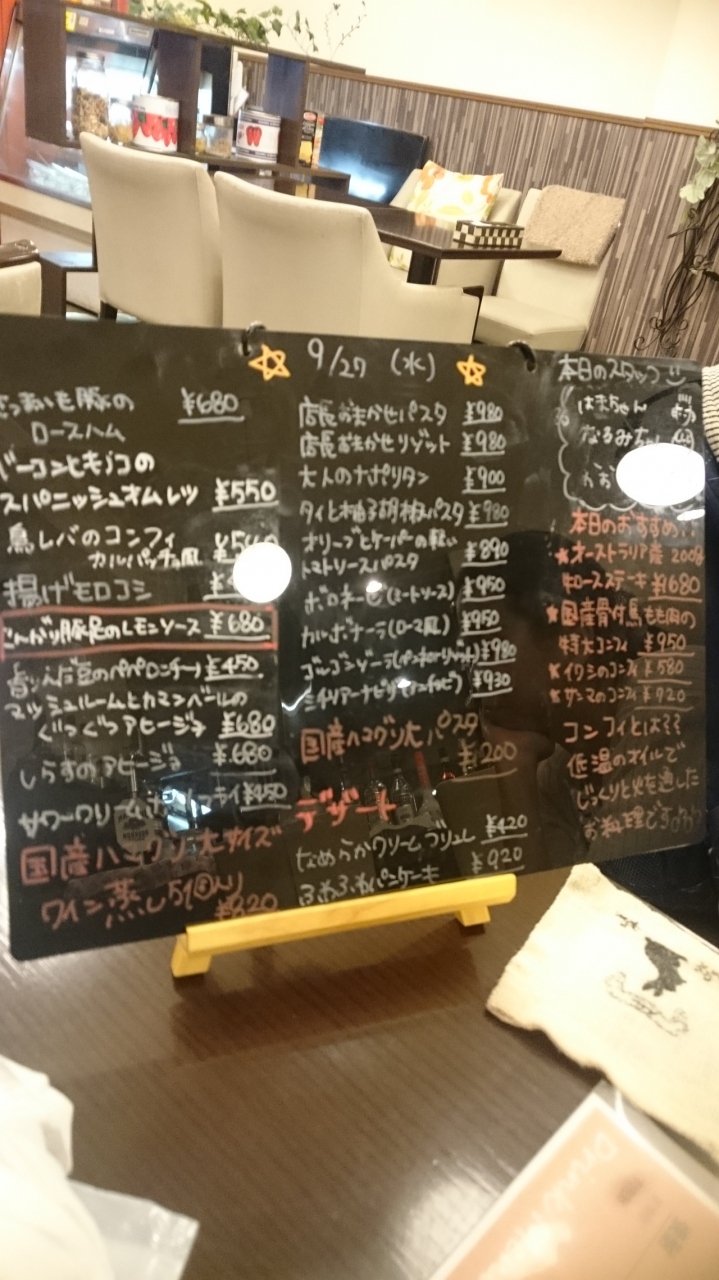 9/27 (水)
豚の ¥680
ロースハム
ベーコンとキノコの
スパニッシュオムレツ ¥550
鳥レバのコンフィ
カルパッチョ風
揚げモロコシ
豚足のレモンソース ¥680
豆のペペロンチーノ ¥450
マッシュルームとカマンベールの
ぐつぐつアヒージョ ¥680
しらすのアヒージョ ¥680
サワークリーム ¥450
国産ハマグリ 大サイズ
ワイン蒸し 5個入り ¥820
店長おまかせパスタ ¥980
店長おまかせリゾット ¥980
大人のナポリタン ¥900
タイと柚子胡椒パスタ ¥980
オリーブとケーパーの軽い ¥890
トマトソースパスタ
ボロネーゼ(ミートソース) ¥950
カルボナーラ(ローマ風) ¥950
ゴルゴンゾーラ(ペンネorリゾット) ¥980
¥930
国産ハマグリ大パスタ
¥1200
デザート
なめらかクリームブリュレ ¥420
ふわふわパンケーキ ¥920
本日のスタッフ
はまちゃん
なるみちゃん
本日のおすすめ!!
★オーストラリア産 200g
牛ロースステーキ ¥1680
★国産骨付鳥もも肉の
特大コンフィ ¥950
★イワシのコンフィ ¥580
★サンマのコンフィ ¥920
コンフィとは
低温のオイルで
じっくりと火を通した
お料理です
Drink